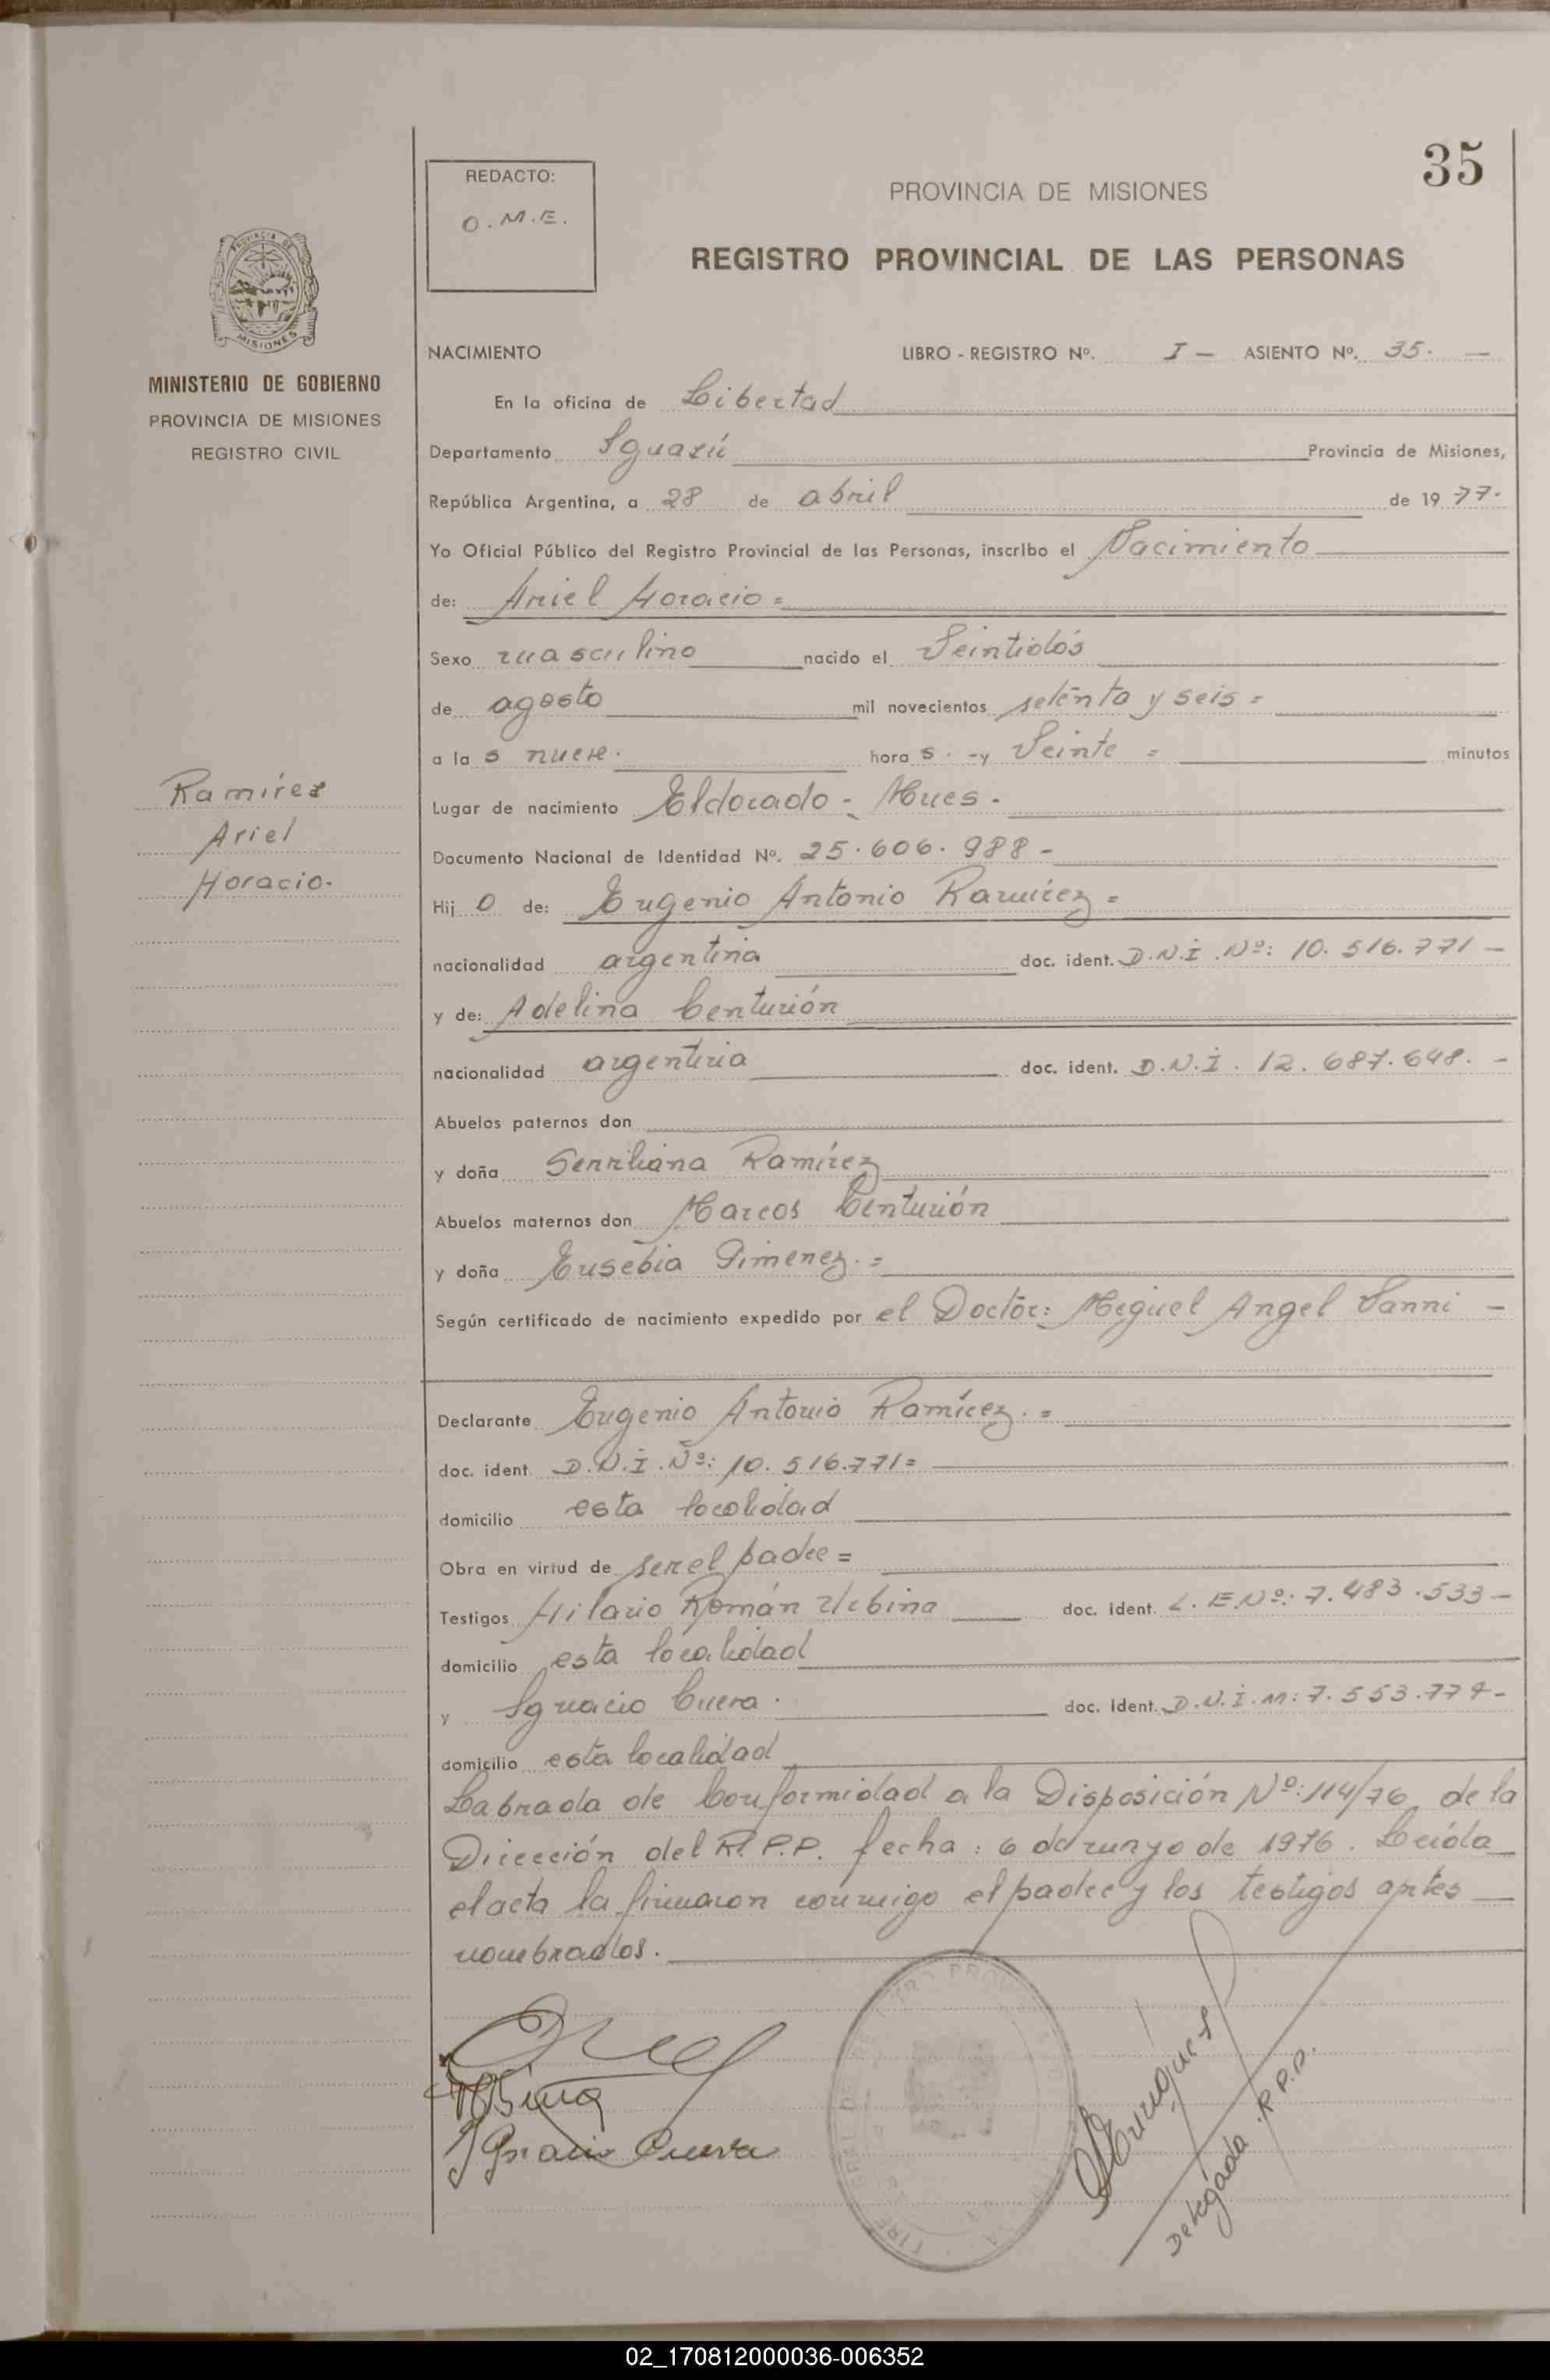 35
REDACTO:
O.M.E.
PROVINCIA DE MISIONES
REGISTRO PROVINCIAL DE LAS PERSONAS
PROVINCIA DE
MISIONES
MINISTERIO DE GOBIERNO
PROVINCIA DE MISIONES
REGISTRO CIVIL
Ramírez
Ariel
Horacio.
NACIMIENTO LIBRO - REGISTRO Nº. I - ASIENTO Nº. 35. -
En la oficina de Libertad
Departamento Iguazú Provincia de Misiones,
República Argentina, a 28 de abril de 19 77.
Yo Oficial Público del Registro Provincial de las Personas, inscribo el Nacimiento
de: Ariel Horacio =
Sexo masculino nacido el Veintidós
de agosto mil novecientos setenta y seis =
a la s nueve. hora s. - y Veinte = minutos
Lugar de nacimiento Eldorado - Mnes -
Documento Nacional de Identidad Nº. 25.606.988 -
Hij o de: Eugenio Antonio Ramírez =
nacionalidad argentina doc. ident. D.N.I. Nº: 10.516.771 -
y de: Adelina Centurión
nacionalidad argentina doc. ident. D.N.I. 12.687.648. -
Abuelos paternos don
y doña Ramírez
Abuelos maternos don Marcos Centurión
y doña Eusebia Gimenez. =
Según certificado de nacimiento expedido por el Doctor: Miguel Angel Vanni -
Declarante Eugenio Antonio Ramírez. =
doc. ident. D.N.I. Nº: 10.516.771 =
domicilio esta localidad
Obra en virtud de ser el padre =
Testigos Hilario Román Urbina doc. ident. L.E. Nº: 7.483.533 -
domicilio esta localidad
y Ignacio Cueva. doc. ident. D.N.I. M: 7.553.774 -
domicilio esta localidad
Labrada de Conformidad a la Disposición Nº: 114/76 de la
Dirección del R.P.P. fecha: 6 de de 1976. Leída
el acta la firmaron conmigo el padre y los testigos antes
nombrados.
Ignacio Cueva
Delegada R.P.P.
02_170812000036-006352